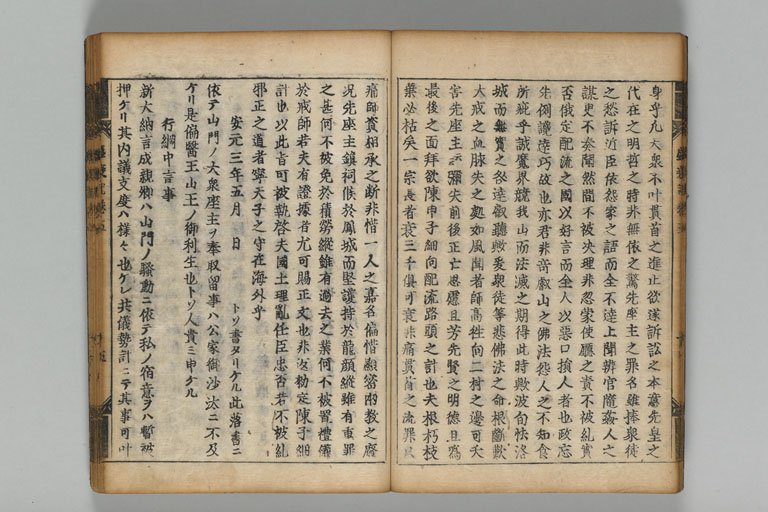 身乎凡大衆不叶貫首之進止欲遂訴訟之本意先皇之
代在之明哲之時非無依之驚先座主之罪名雖捧衆徒
之愁訴近臣依怨家之語而全不達上聞辨官隨姦人之
謀史不奏聞然間不被決理非忽蒙使廳之責不被糺實
否俄定配流之國以好言而全人以惡口損人者也政忘
先例讒達巧故也亦君非背叡山之佛法怨人之不知食
所疵乎誠魔界競我山而法滅之期得此時歟波旬怯洛
城而無實之咎達叡聽歟爰衆徒等悲佛法之命根斷歎
大戒之血脉失之處如風聞者師高往向二村之邊可夭
害先座主云彌失前後正亡思慮且芳先賢之明德且為
最後之面拜欲陳申子細向配流路頭之計也夫根朽枝
葉必枯矣一宗長者衰三千俱可衰非痛貫首之流罪只
痛師資相承之断非惜一人之嘉名偏惜顯密兩教之廢
況先座主鎮祠候於鳳城而堅護持於龍顔縱雖有重罪
之甚何不被免於積勞縱雖有過去之業何不被置禮儀
於戒師若夫有證據者尤可賜正文也非友勅定陳子細
計也以此言可被執啓夫國土理亂任臣忠否若不被糺
邪正之道者寧天子之守在海外乎
安元三年五月 日 トソ書タリケル此落書ニ
依テ山門ノ大衆座主ヲ奉取留事ハ公家御沙汰ニ不及
ケリ是偏醫王山王ノ御利生也トソ人貴ミ申ケル
行綱中言事
新大納言成親卿ハ山門ノ騷動ニ依テ私ノ宿意ヲハ暫被
押ケリ其内議支度ハ様々也ケレ共儀勢計ニテ其事可叶